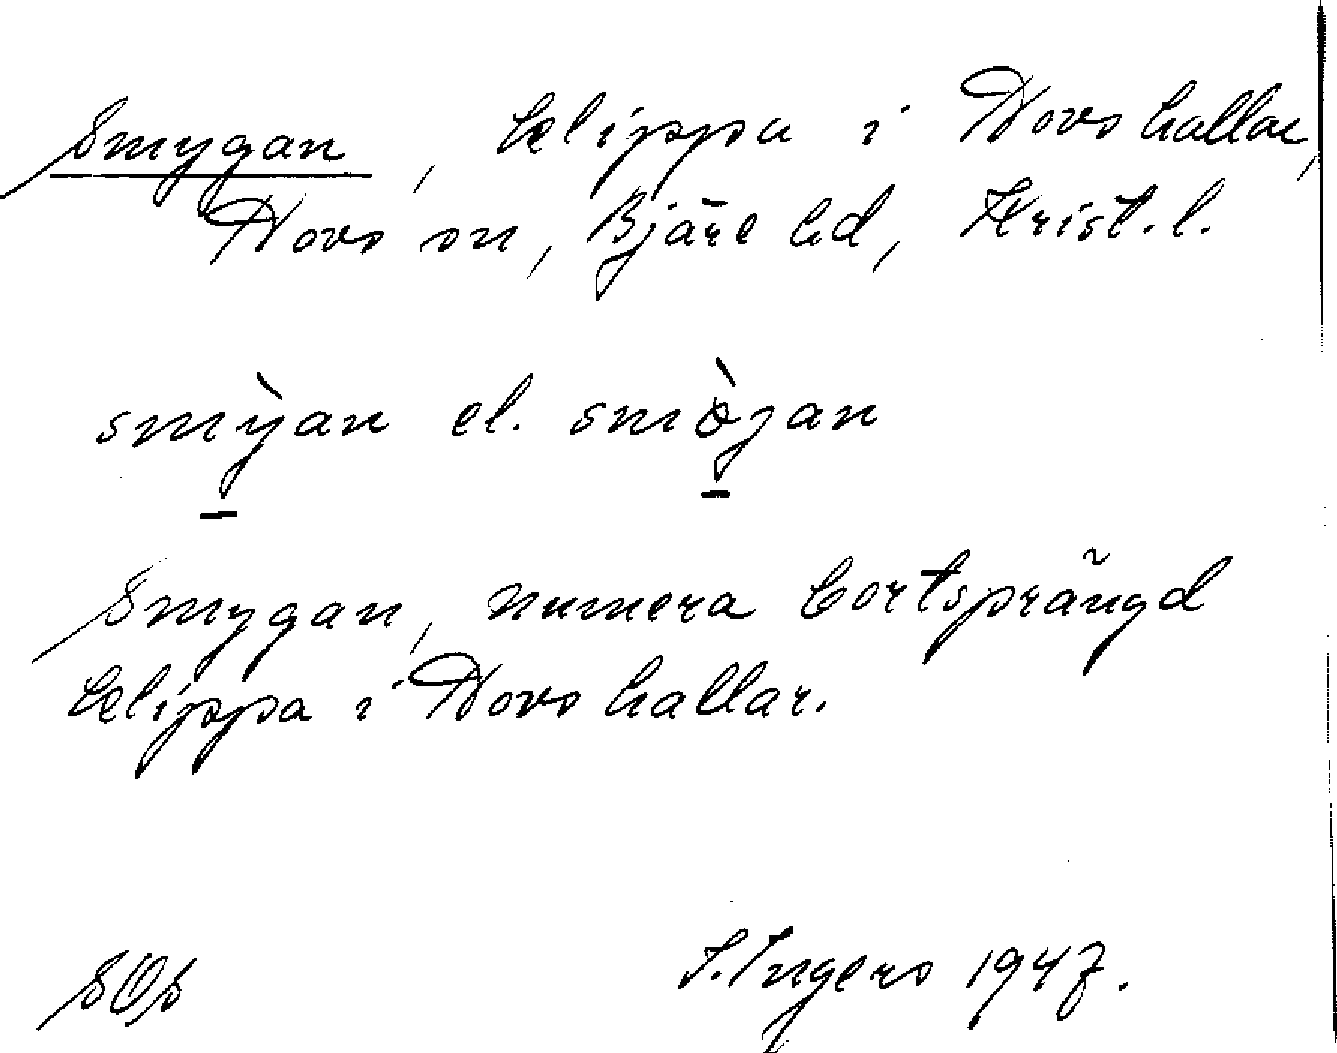 Smygan, klippa i Hovs hallar,
Hovs sn, Bjäre hd, Krist. l.
smỳjan el. smòjan
Smygan, numera bortsprängd
klippa i Hovs hallar.
SOS I. Ingers 1947.